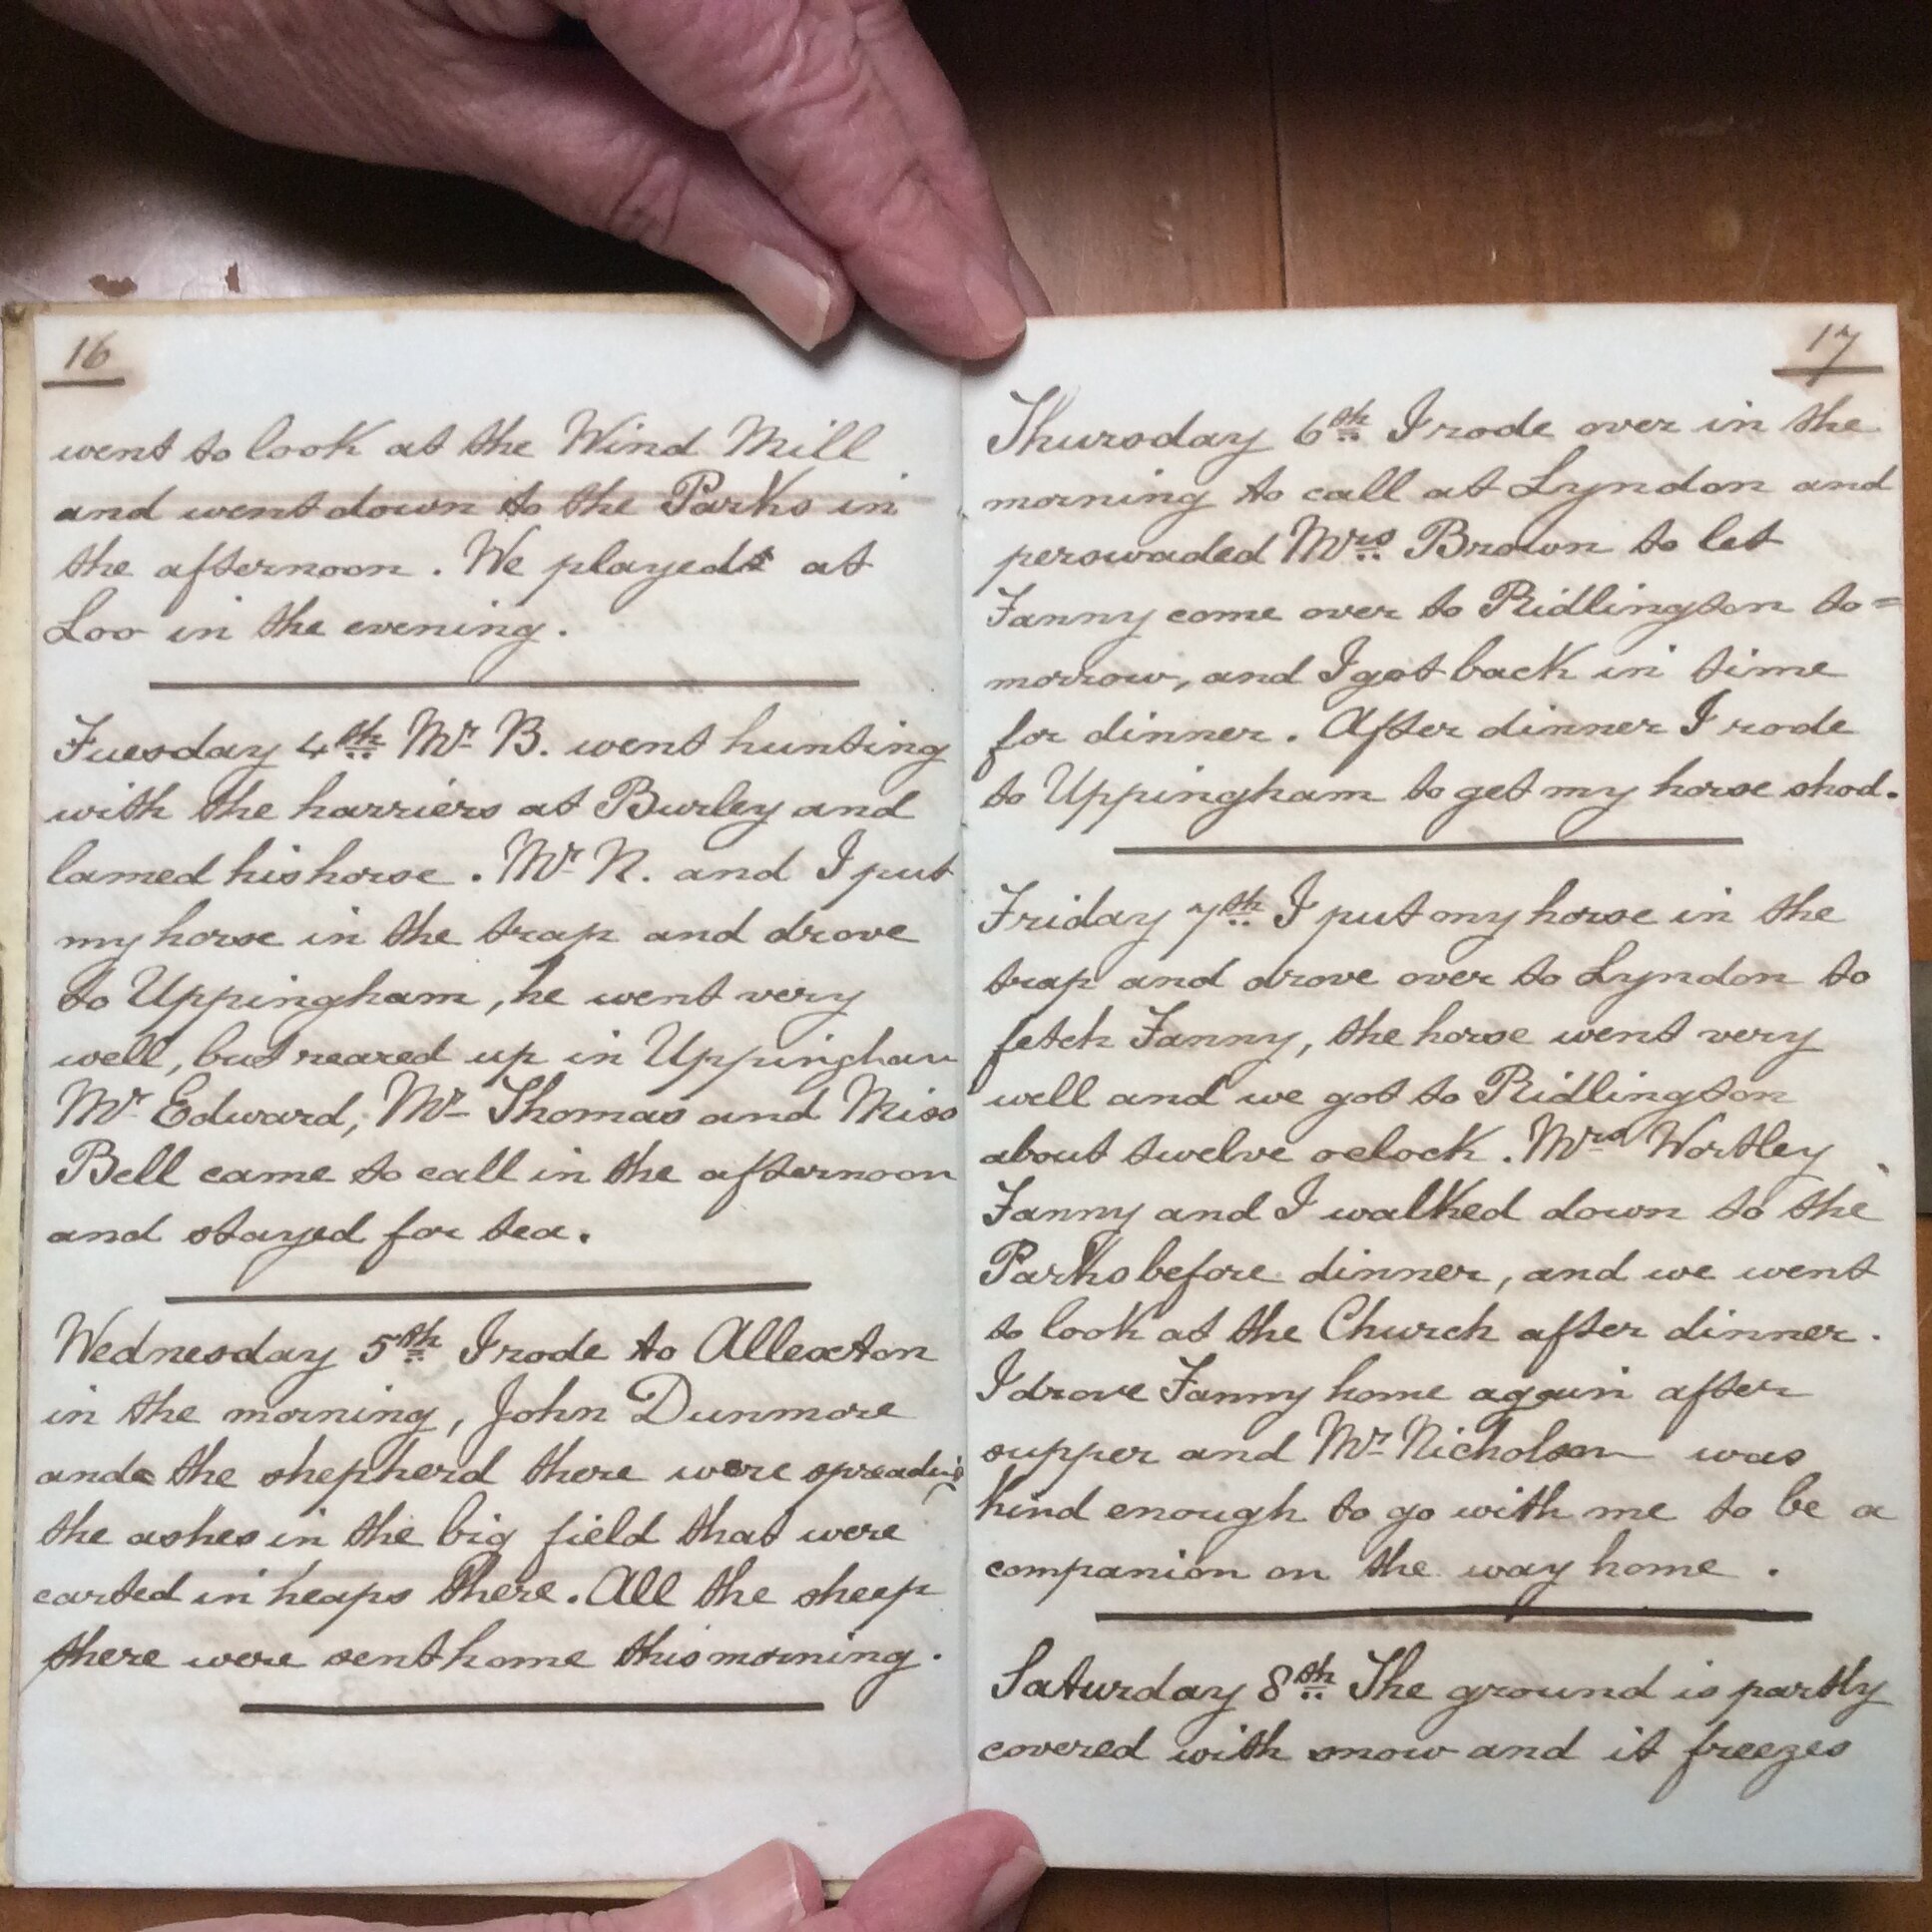 16
went to look at the Wind Mill
and went down to the Parks in
the afternoon. We played at
Loo in the evening.
Tuesday 4th Mr B. went hunting
with the harriers at Burley and
lamed his horse. Mr N. and I put
my horse in the trap and drove
to Uppingham, he went very
well, but reared up in Uppingham
Mr Edward, Mr Thomas and Miss
Bell came to call in the afternoon
and stayed for tea.
Wednesday 5th I rode to Allexton
in the morning, John Dunmore
and the shepherd there were spreading
the ashes in the big field that were
carted in heaps there. All the sheep
there were sent home this morning.
17
Thursday 6th I rode over in the
morning to call at Lyndon and
perswaded Mrs Brown to let
Fanny come over to Ridlington to=
morrow, and I got back in time
for dinner. After dinner I rode
to Uppingham to get my horse shod.
Friday 7th I put my horse in the
trap and drove over to Lyndon to
fetch Fanny, the horse went very
well and we got to Ridlington
about twelve oclock. Mrs Wortley
Fanny and I walked down to the
Parks before dinner, and we went
to look at the Church after dinner.
I drove Fanny home again after
supper and Mr Nicholson was
kind enough to go with me to be a
companion on the way home.
Saturday 8th The ground is partly
covered with snow and it freezes